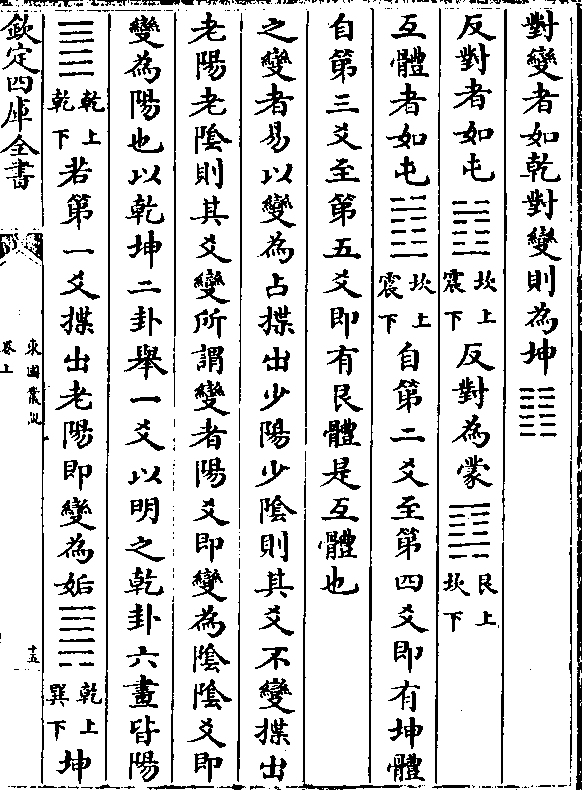 對變者如乾對變則為坤䷁
反對者如屯䷂坎上震下反對為蒙䷃艮上坎下
互體者如屯䷂坎上震下自第二爻至第四爻即有坤體
自第三爻至第五爻即有艮體是互體也
之變者易以變為占揲出少陽少陰則其爻不變揲出
老陽老陰則其爻變所謂變者陽爻即變為陰陰爻即
變為陽也以乾坤二卦舉一爻以明之乾卦六畫皆陽
䷀乾上乾下若第一爻揲出老陽即變為姤䷫乾上巽下坤
欽定四庫全書
東園叢說
卷上
十五